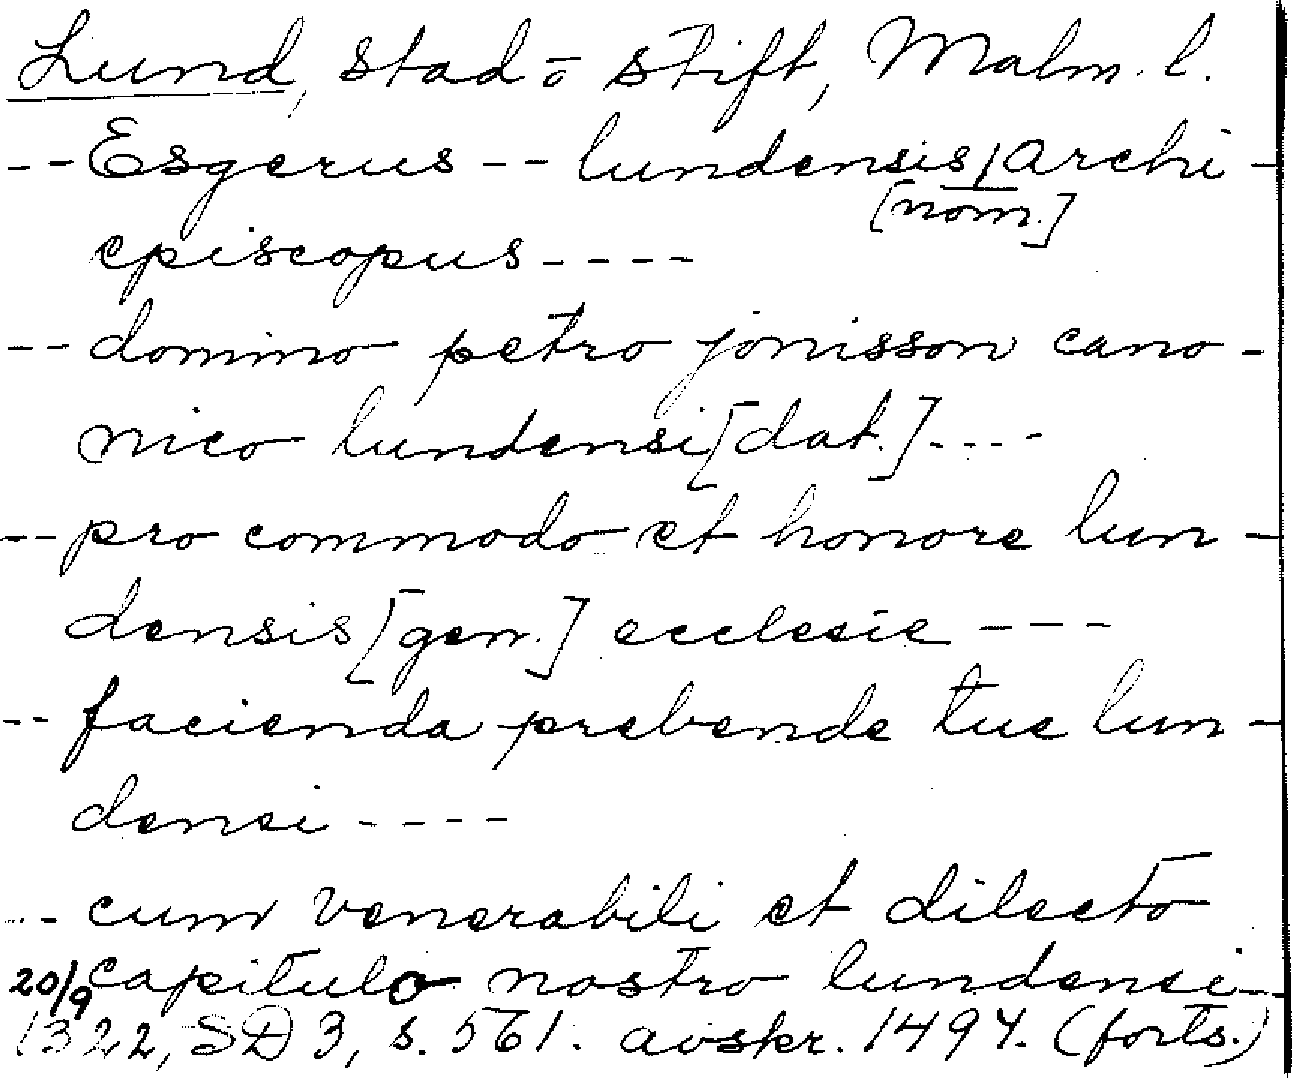 Lund, stad o stift, Malm. l.
-- Esgerus -- lundensis/archi-
[nom.]
episcopus ----
-- domino petro jonisson cano-
nico lundensi [dat.] ----
-- pro commodo et honore lun-
densis [gen.] ecclesie ---
-- facienda prebende tue lun-
densi ----
-- cum venerabili et dilecto
capitulo nostro lundensi --
20/9
1322, SD 3, s. 561. avskr. 1494. (forts.)